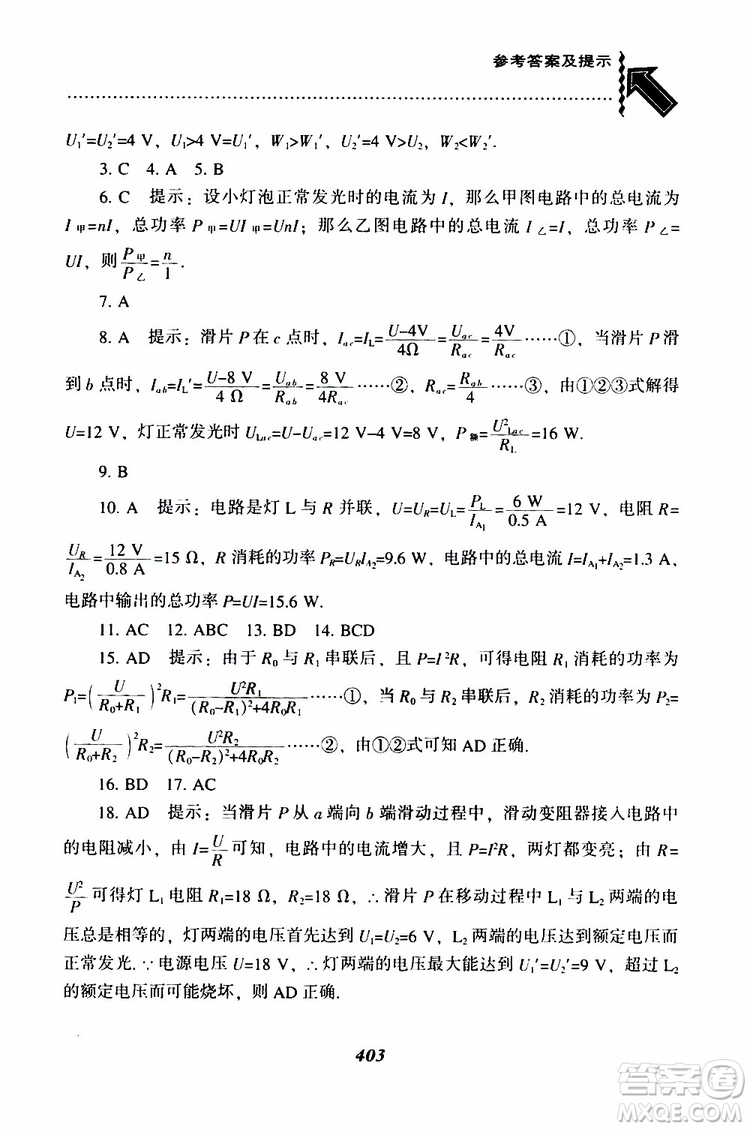 参考答案及提示
U₁′=U₂′=4 V, U₁>4 V=U₁′, W₁>W₁′, U₂′=4 V>U₂, W₂<W₂′.
3. C 4. A 5. B
6. C 提示：设小灯泡正常发光时的电流为 I，那么甲图电路中的总电流为
I甲=nI，总功率 P甲=UI甲=UnI；那么乙图电路中的总电流 I乙=I，总功率 P乙=
UI，则 P甲/P乙=n/1.
7. A
8. A 提示：滑片 P 在 c 点时，I_ac=I_L=(U-4V)/4Ω=U_ac/R_ac=4V/R_ac……①，当滑片 P 滑
到 b 点时，I_ab=I_L′=(U-8 V)/4 Ω=U_ab/R_ab=8 V/4R_ac……②，R_ac=R_ab/4……③，由①②③式解得
U=12 V，灯正常发光时 U_Lac=U-U_ac=12 V-4 V=8 V，P额=U²_Lac/R_L=16 W.
9. B
10. A 提示：电路是灯 L 与 R 并联，U=U_R=U_L=P_L/I_A₁=6 W/0.5 A=12 V，电阻 R=
U_R/I_A₂=12 V/0.8 A=15 Ω，R 消耗的功率 P_R=U_R I_A2=9.6 W，电路中的总电流 I=I_A₁+I_A₂=1.3 A，
电路中输出的总功率 P=UI=15.6 W.
11. AC 12. ABC 13. BD 14. BCD
15. AD 提示：由于 R₀ 与 R₁ 串联后，且 P=I²R，可得电阻 R₁ 消耗的功率为
P₁=(U/(R₀+R₁))²R₁=U²R₁/((R₀-R₁)²+4R₀R₁)……①，当 R₀ 与 R₂ 串联后，R₂ 消耗的功率为 P₂=
(U/(R₀+R₂))²R₂=U²R₂/((R₀-R₂)²+4R₀R₂)……②，由①②式可知 AD 正确.
16. BD 17. AC
18. AD 提示：当滑片 P 从 a 端向 b 端滑动过程中，滑动变阻器接入电路中
的电阻减小，由 I=U/R 可知，电路中的电流增大，两灯都变亮；由 R=
U²/P 可得灯 L₁ 电阻 R₁=18 Ω，R₂=18 Ω，∴滑片 P 在移动过程中 L₁ 与 L₂ 两端的电
压总是相等的，灯两端的电压首先达到 U₁=U₂=6 V，L₂ 两端的电压达到额定电压而
正常发光.∵电源电压 U=18 V，∴灯两端的电压最大能达到 U₁′=U₂′=9 V，超过 L₂
的额定电压而可能烧坏，则 AD 正确.
403
答案圈
MXQE.COM